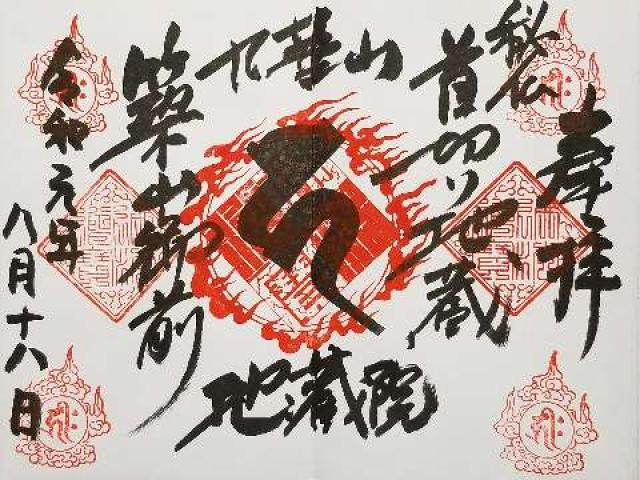 奉拝
秘仏
首切り地蔵
九華山
地蔵院
築山御前
令和元年
八月十八日